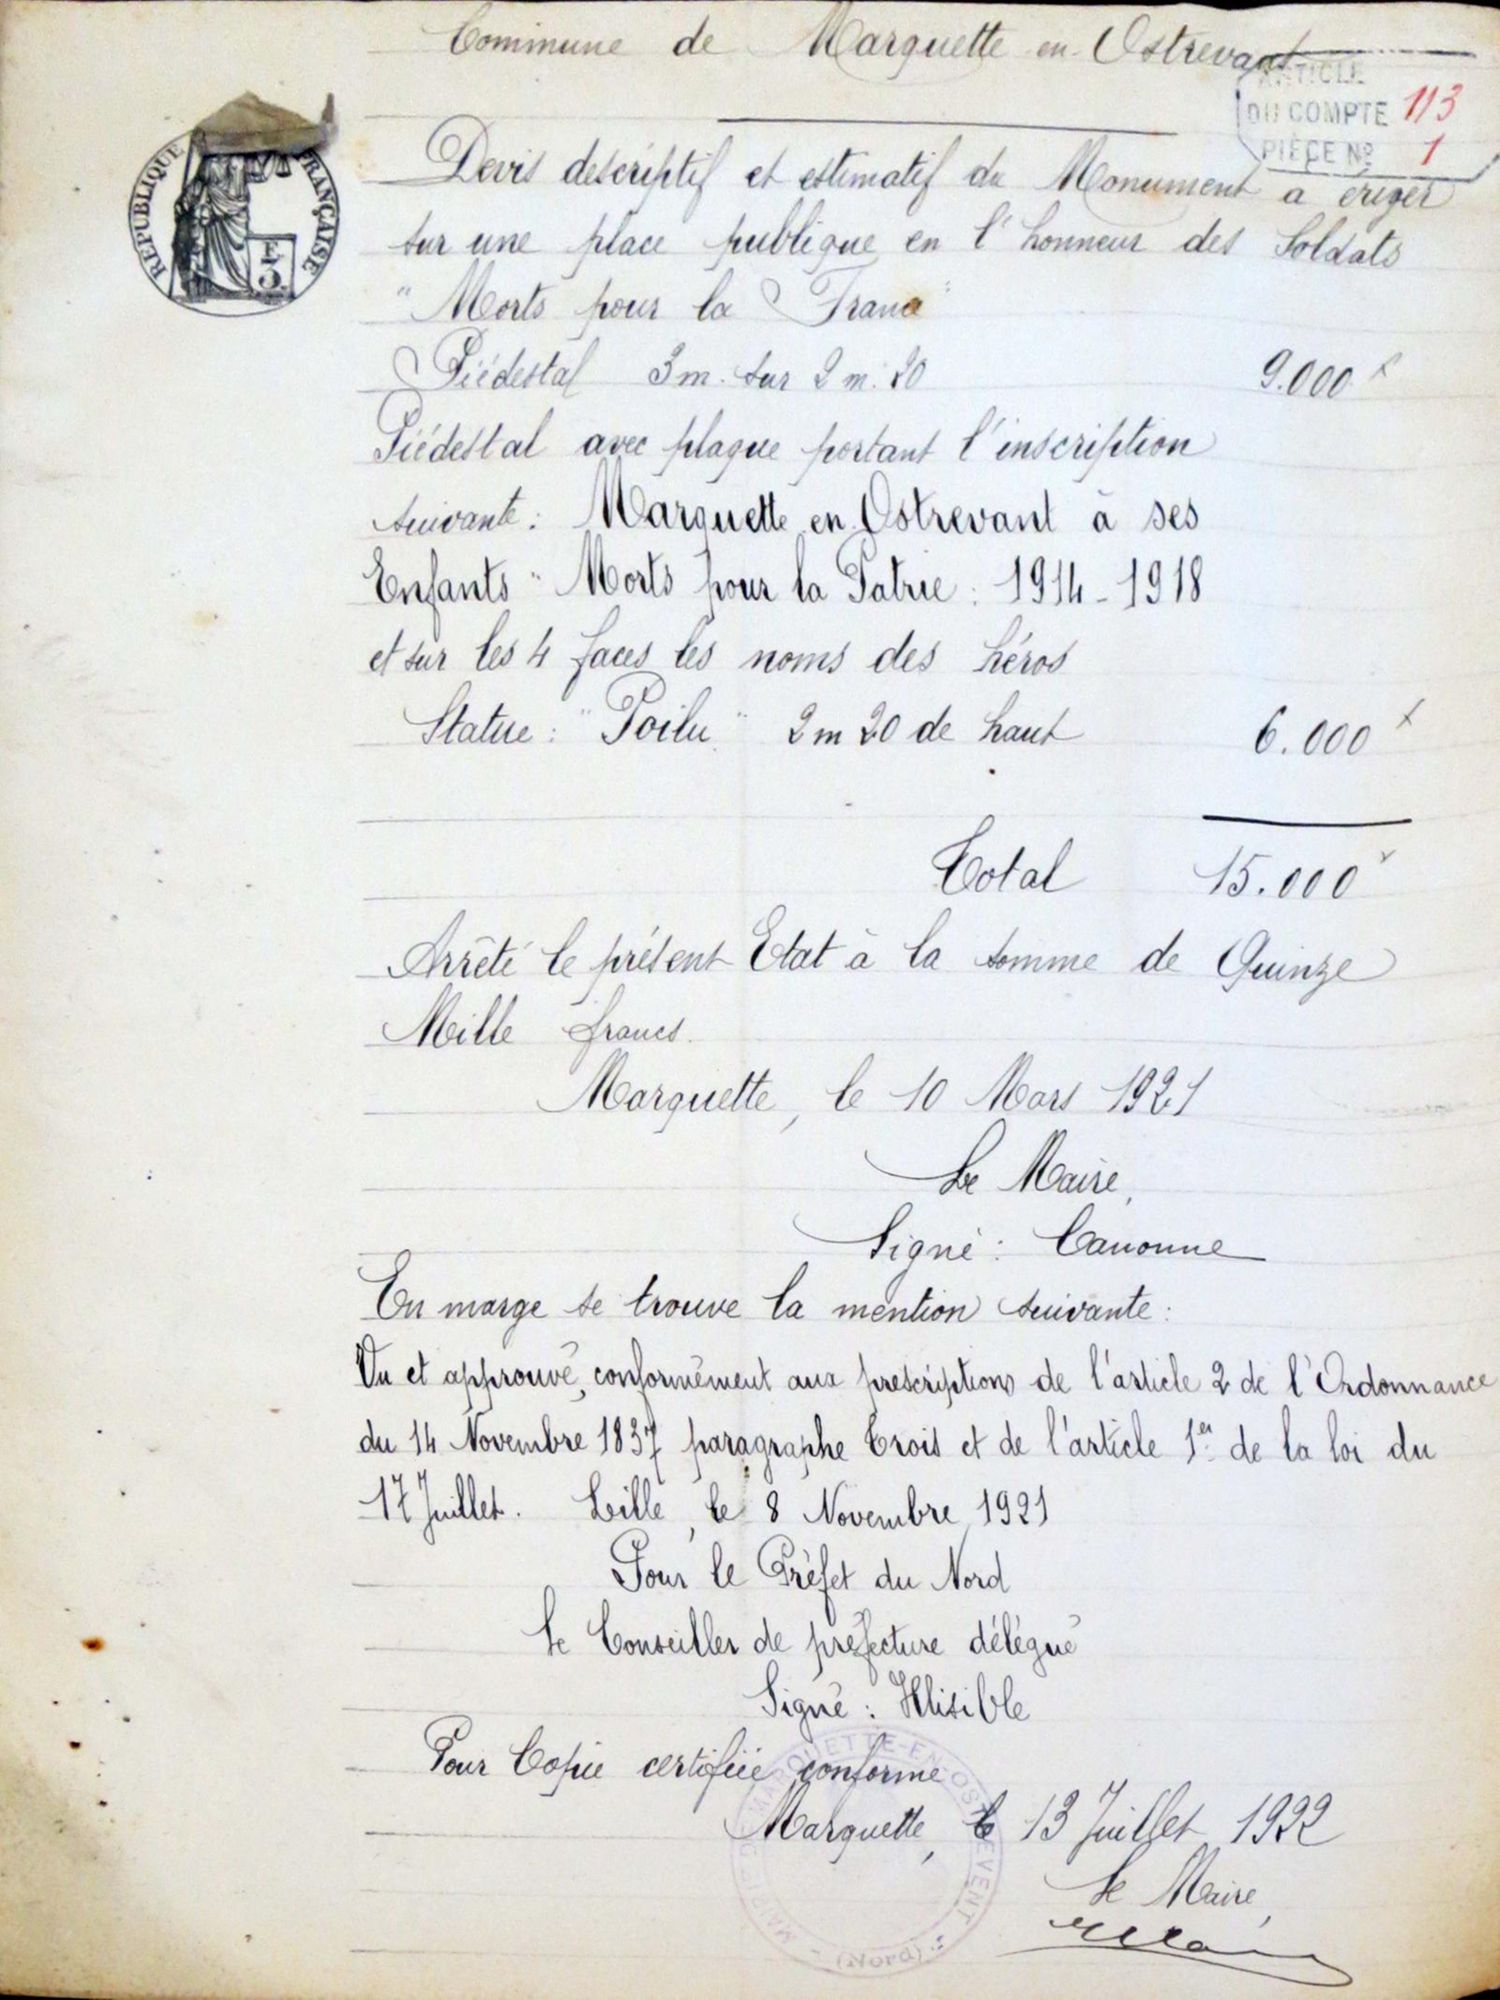 Commune de Marquette en Ostrevant
ARTICLE
DU COMPTE 113
PIÈCE No 1
REPUBLIQUE FRANÇAISE
F
3
Devis descriptif et estimatif du Monument a eriger
sur une place publique en l'honneur des Soldats
"Morts pour la France"
Piédestal 3m. sur 2m.20 9.000
Piédestal avec plaque portant l'inscription
suivante : Marquette en Ostrevant à ses
Enfants " Morts pour la Patrie : 1914-1918
et sur les 4 faces les noms des héros
Statue : "Poilu" 2m20 de haut 6.000
Total 15.000
Arrêté le présent Etat à la somme de Quinze
Mille francs.
Marquette, le 10 Mars 1921
Le Maire,
Signé : Canonne
En marge se trouve la mention suivante :
Vu et approuvé, conformément aux prescriptions de l'article 2 de l'Ordonnance
du 14 Novembre 1837 paragraphe trois et de l'article 1er de la loi du
17 Juillet. Lille, le 8 Novembre 1921
Pour le Préfet du Nord
Le Conseiller de préfecture délégué
Signé : Illisible
Pour Copie certifiée conforme
Marquette, le 13 Juillet 1922
Le Maire,
MAIRIE DE MARQUETTE-EN-OSTREVENT
(Nord)